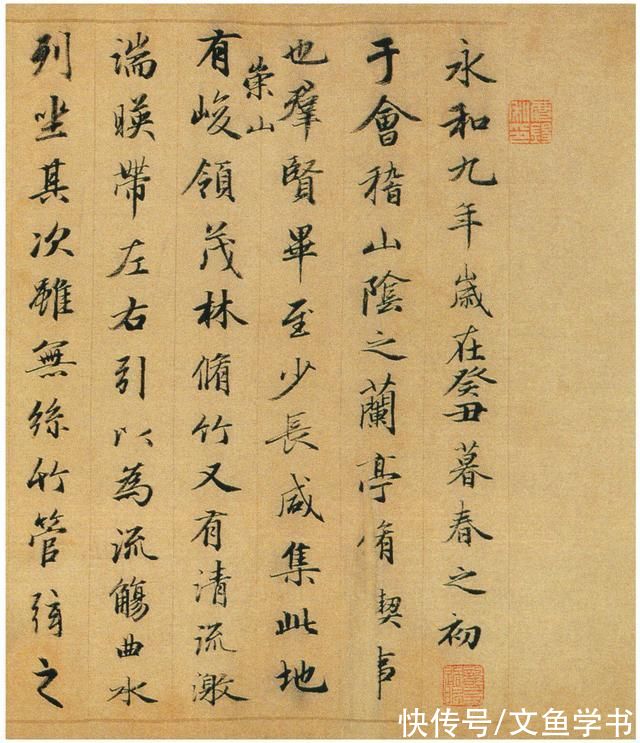 永和九年歲在癸丑暮春之初
于會稽山陰之蘭亭脩禊事
也羣賢畢至少長咸集此地
有崇山峻領茂林脩竹又有清流激
湍暎帶左右引以為流觴曲水
列坐其次雖無絲竹管弦之
快传号/文鱼学书